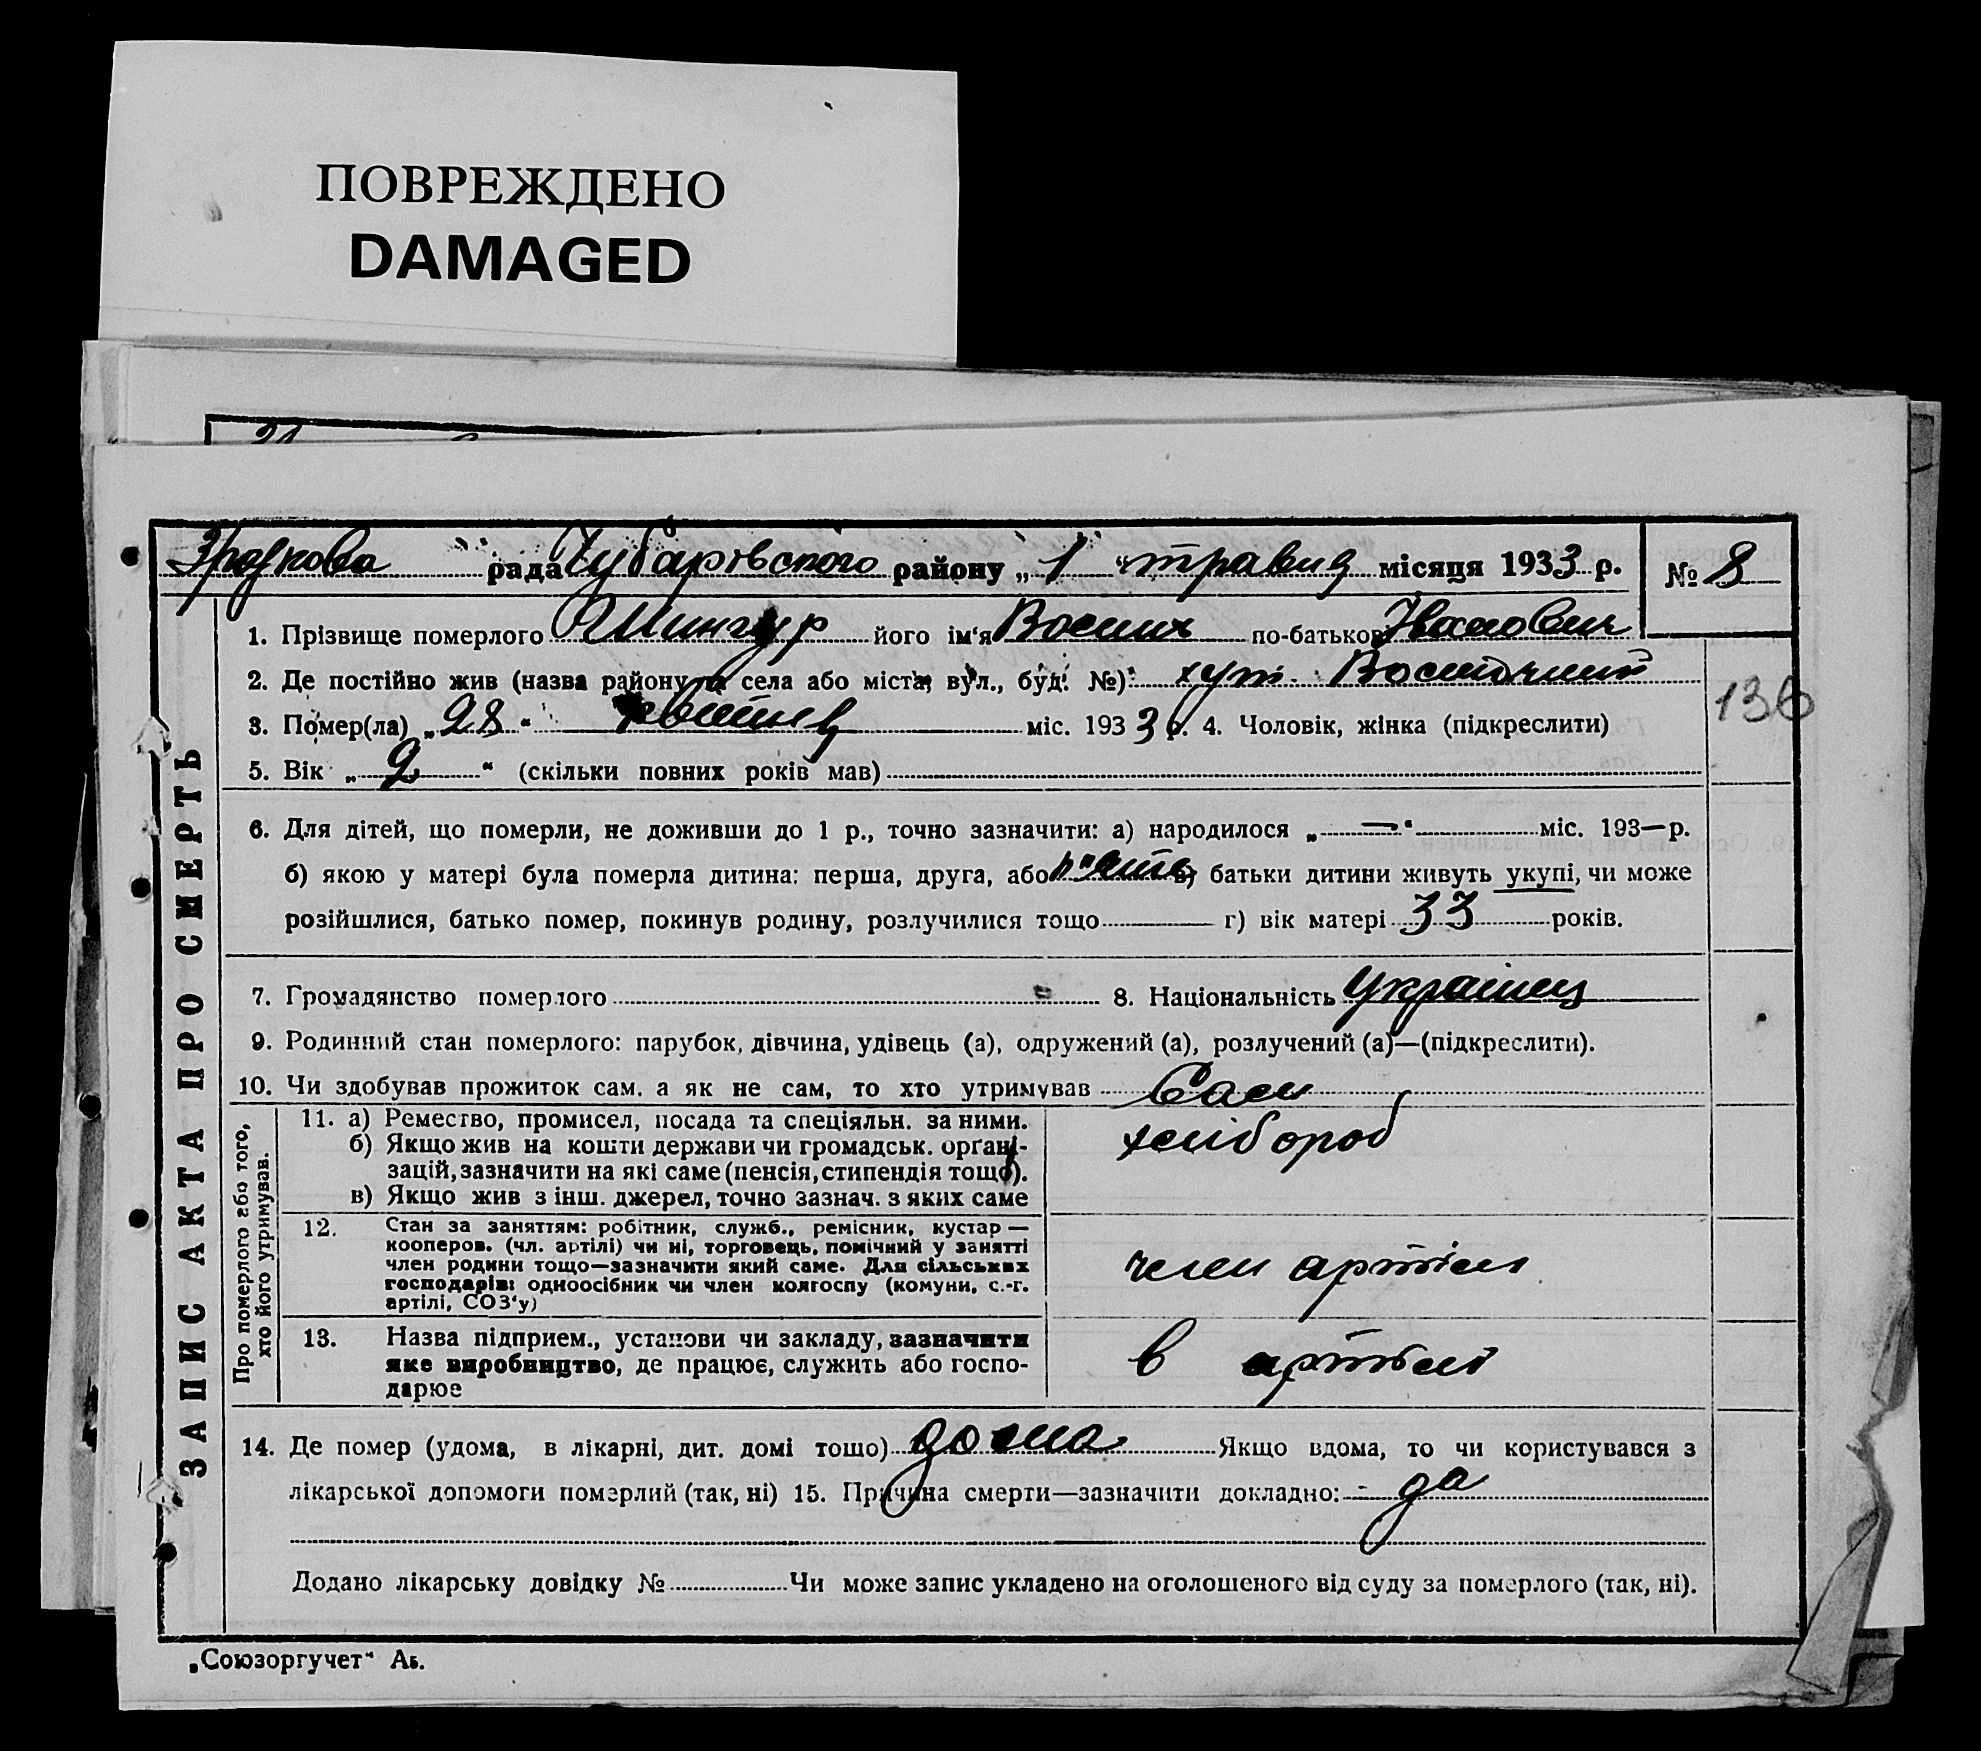 ПОВРЕЖДЕНО
DAMAGED
рада Чубарівського району „ 1 “ травня місяця 1933 р. № 8
1. Прізвище померлого його ім‘я по-батьков Іванович
2. Де постійно жив (назва району та села або міста, вул., буд. №) хут. Восточний
3. Помер(ла) „ 28 “ квітня міс. 1933 р. 4. Чоловік, жінка (підкреслити)
5. Вік „ 2 “ (скільки повних років мав)
136
6. Для дітей, що померли, не доживши до 1 р., точно зазначити: а) народилося „ — “ міс. 193—р.
б) якою у матері була померла дитина: перша, друга, або п'ять в) батьки дитини живуть укупі, чи може
розійшлися, батько помер, покинув родину, розлучилися тощо г) вік матері 33 років.
7. Громадянство померлого 8. Національність Українец
9. Родинний стан померлого: парубок, дівчина, удівець (а), одружений (а), розлучений (а)—(підкреслити).
10. Чи здобував прожиток сам, а як не сам, то хто утримував
Про померлого або того,
хто його утримував.
11. а) Ремество, промисел, посада та спеціяльн. за ними.
б) Якщо жив на кошти держави чи громадськ. орґані-
зацій, зазначити на які саме (пенсія, стипендія тощо).
в) Якщо жив з інш. джерел, точно зазнач. з яких саме
хлібороб
12. Стан за заняттям: робітник, служб., ремісник, кустар —
кооперов. (чл. артілі) чи ні, торговець, помічний у занятті
член родини тощо—зазначити який саме. Для сільських
господарів: одноосібник чи член колгоспу (комуни, с.-г.
артілі, СОЗ‘у)
член артіли
13. Назва підприєм., установи чи закладу, зазначити
яке виробництво, де працює, служить або госпо-
дарює
в артілі
14. Де помер (удома, в лікарні, дит. домі тощо) дома Якщо вдома, то чи користувався з
лікарської допомоги померлий (так, ні) 15. Причина смерти—зазначити докладно: да
Додано лікарську довідку № Чи може запис укладено на оголошеного від суду за померлого (так, ні).
ЗАПИС АКТА ПРО СМЕРТЬ
„Союзоргучет“